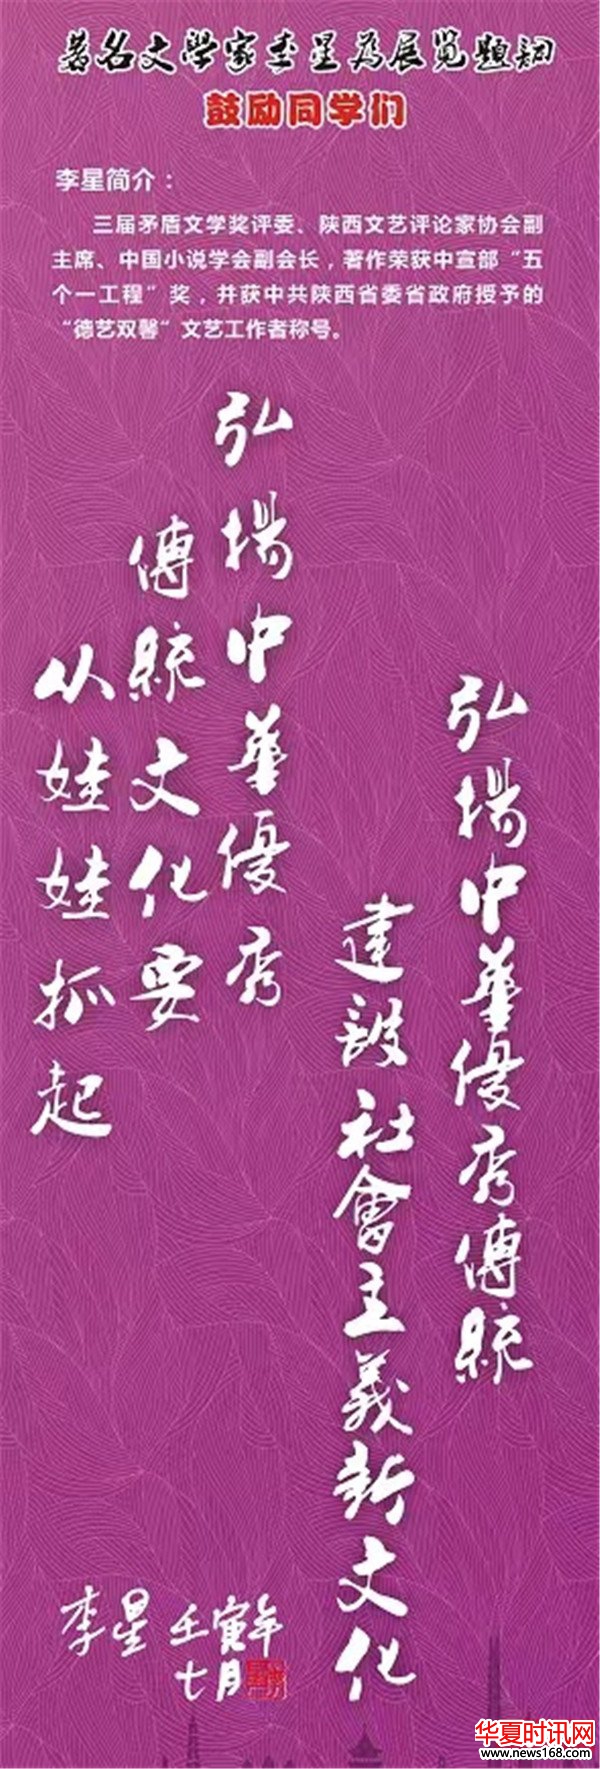 著名文學家李星为展览题詞
鼓励同学们
李星简介：
三届矛盾文学奖评委、陕西文艺评论家协会副
主席、中国小说学会副会长，著作荣获中宣部“五
个一工程”奖，并获中共陕西省委省政府授予的
“德艺双馨”文艺工作者称号。
弘揚中華優秀傳統
建設社會主義新文化
弘揚中華優秀
傳統文化要
从娃娃抓起
李星 壬寅年
七月
华夏时讯网
www.news168.com